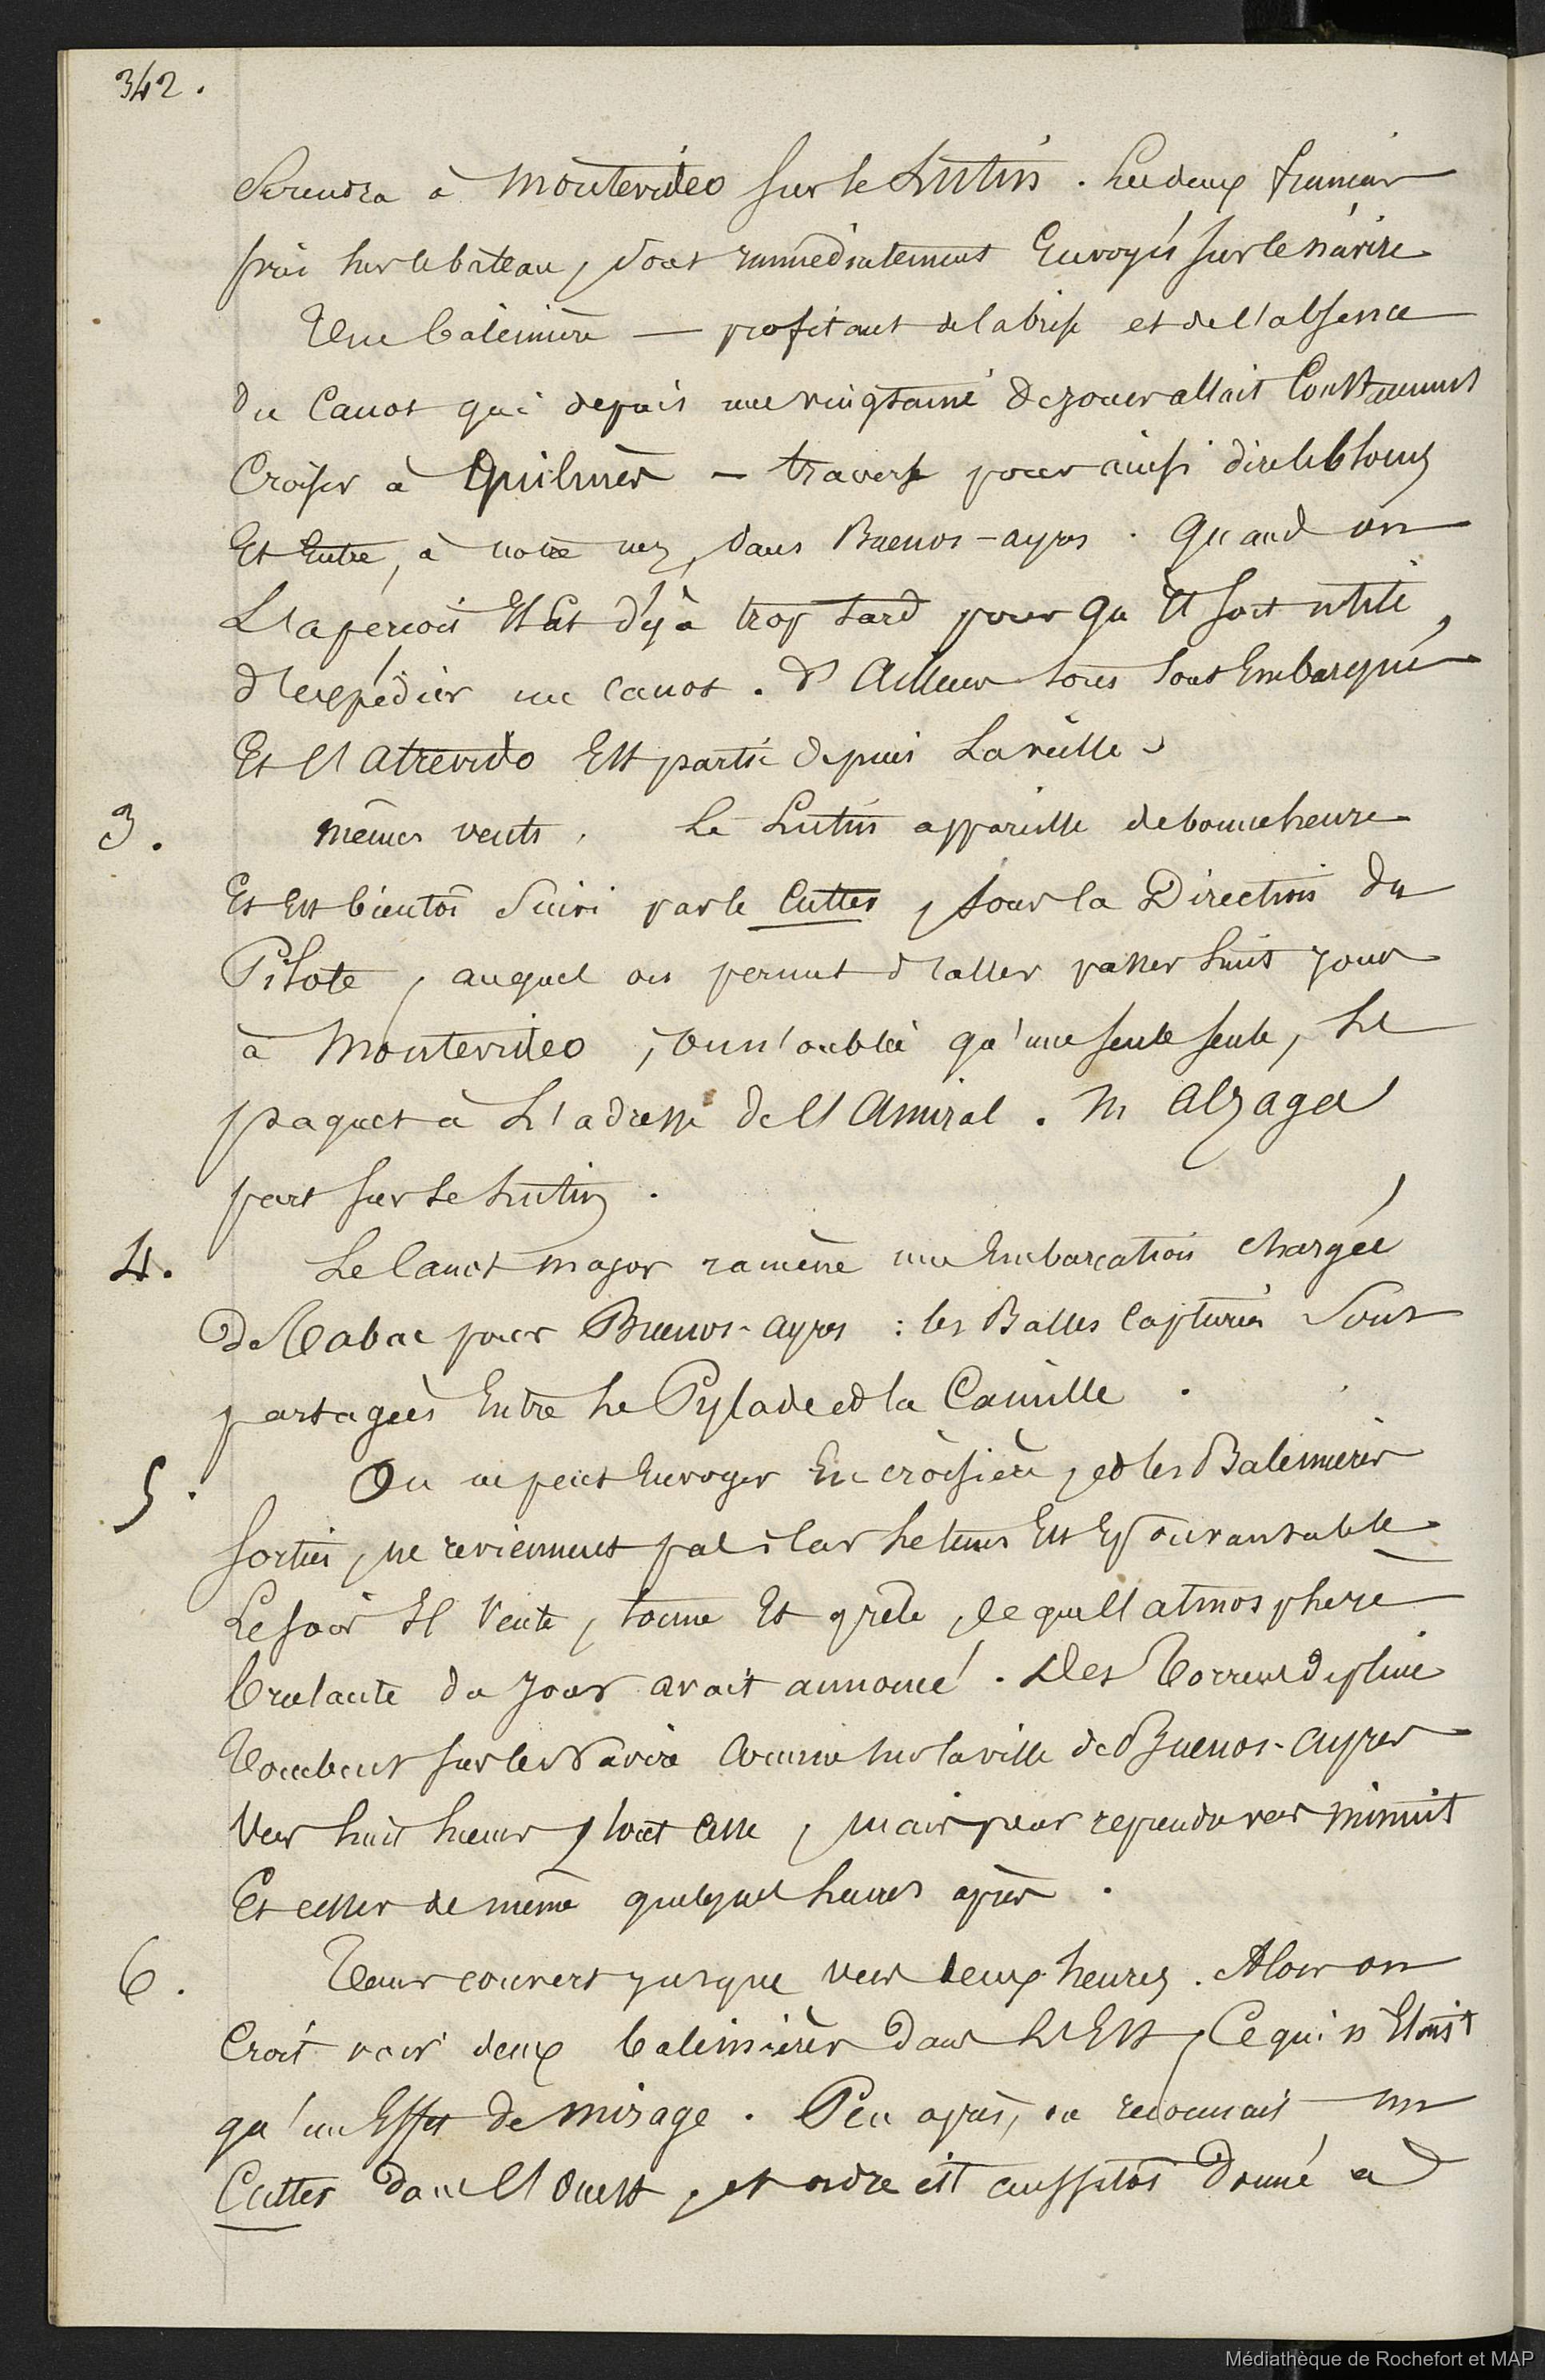 342.
Se rendra à Montevideo sur le Lutin. Les deux français
pris sur le bateau, sont immédiatement Envoyés sur le navire
Une baleinière — profitant de la brise et de l'absence
du Canot qui depuis une vingtaine de jours allait Constamment
Croiser à Quilmès — traverse pour ainsi dire le blocus
Et Entre, à notre nez, dans Buenos-ayres. Quand on
L'aperçoit Il Est déjà trop tard pour qu'Il soit utile
d'expédier un canot. D'Ailleurs tous sont Embarqués
Et l'Atrevido Est partie depuis La veille.
3. mêmes vents. Le Lutin appareille de bonne heure
Et Est bientôt Suivi par le Cutter, sous la Direction du
Pilote, auquel on permet d'aller passer huit jours
à Montevideo, on n'oublie qu'une seule seule, Le
paquet à L'adresse de l'Amiral. M Alzaga
part sur le Lutin.
4. Le Canot major ramène une Embarcation chargée
De Tabac pour Buenos-ayres : les Balles Capturées Sont
partagées Entre Le Pylade et la Camille.
5. On ne peut Envoyer En croisière, et les Baleinières
sorties, ne reviennent pas ; Car Le tems Est Epouvantable
Le soir Il Vente, tonne Et grêle, ce que l'atmosphère
brulante du jour avait annoncé. Des Torrens de pluie
Tombent sur les Navires Comme sur la ville de Buenos-Ayres
Vers huit heures, tout cesse, mais pour reprendre vers minuit
Et cesser de même quelques heures après.
6. Tems couvert jusque vers deux heures. Alors on
Croit voir deux baleinières dans L'Est, Ce qui n'Etait
qu'un Effet de mirage. Peu après, on reconnait un
Cutter dans l'Ouest, et ordre est aussitôt Donné à
Médiathèque de Rochefort et MAP